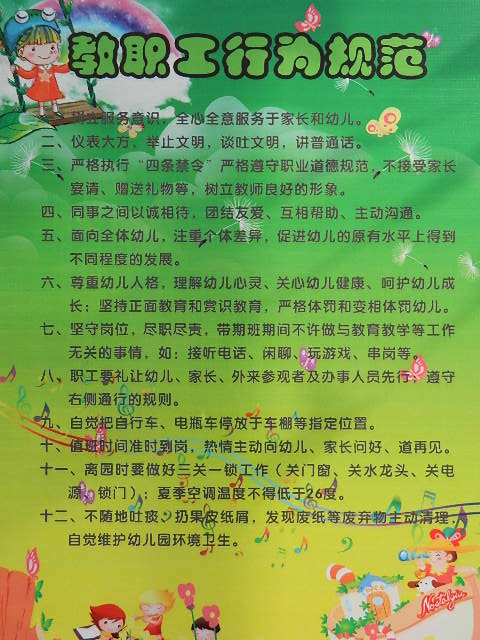 教职工行为规范
一、树立服务意识，全心全意服务于家长和幼儿。
二、仪表大方，举止文明，谈吐文明，讲普通话。
三、严格执行“四条禁令”严格遵守职业道德规范，不接受家长
宴请、赠送礼物等，树立教师良好的形象。
四、同事之间以诚相待，团结友爱、互相帮助、主动沟通。
五、面向全体幼儿，注重个体差异，促进幼儿的原有水平上得到
不同程度的发展。
六、尊重幼儿人格，理解幼儿心灵、关心幼儿健康、呵护幼儿成
长；坚持正面教育和赏识教育，严格体罚和变相体罚幼儿。
七、坚守岗位，尽职尽责，带期班期间不许做与教育教学等工作
无关的事情，如：接听电话、闲聊、玩游戏、串岗等。
八、职工要礼让幼儿、家长、外来参观者及办事人员先行，遵守
右侧通行的规则。
九、自觉把自行车、电瓶车停放于车棚等指定位置。
十、值班时间准时到岗，热情主动向幼儿、家长问好、道再见。
十一、离园时要做好三关一锁工作（关门窗、关水龙头、关电
源、锁门）；夏季空调温度不得低于26度。
十二、不随地吐痰、扔果皮纸屑，发现废纸等废弃物主动清理，
自觉维护幼儿园环境卫生。
Nostalgia